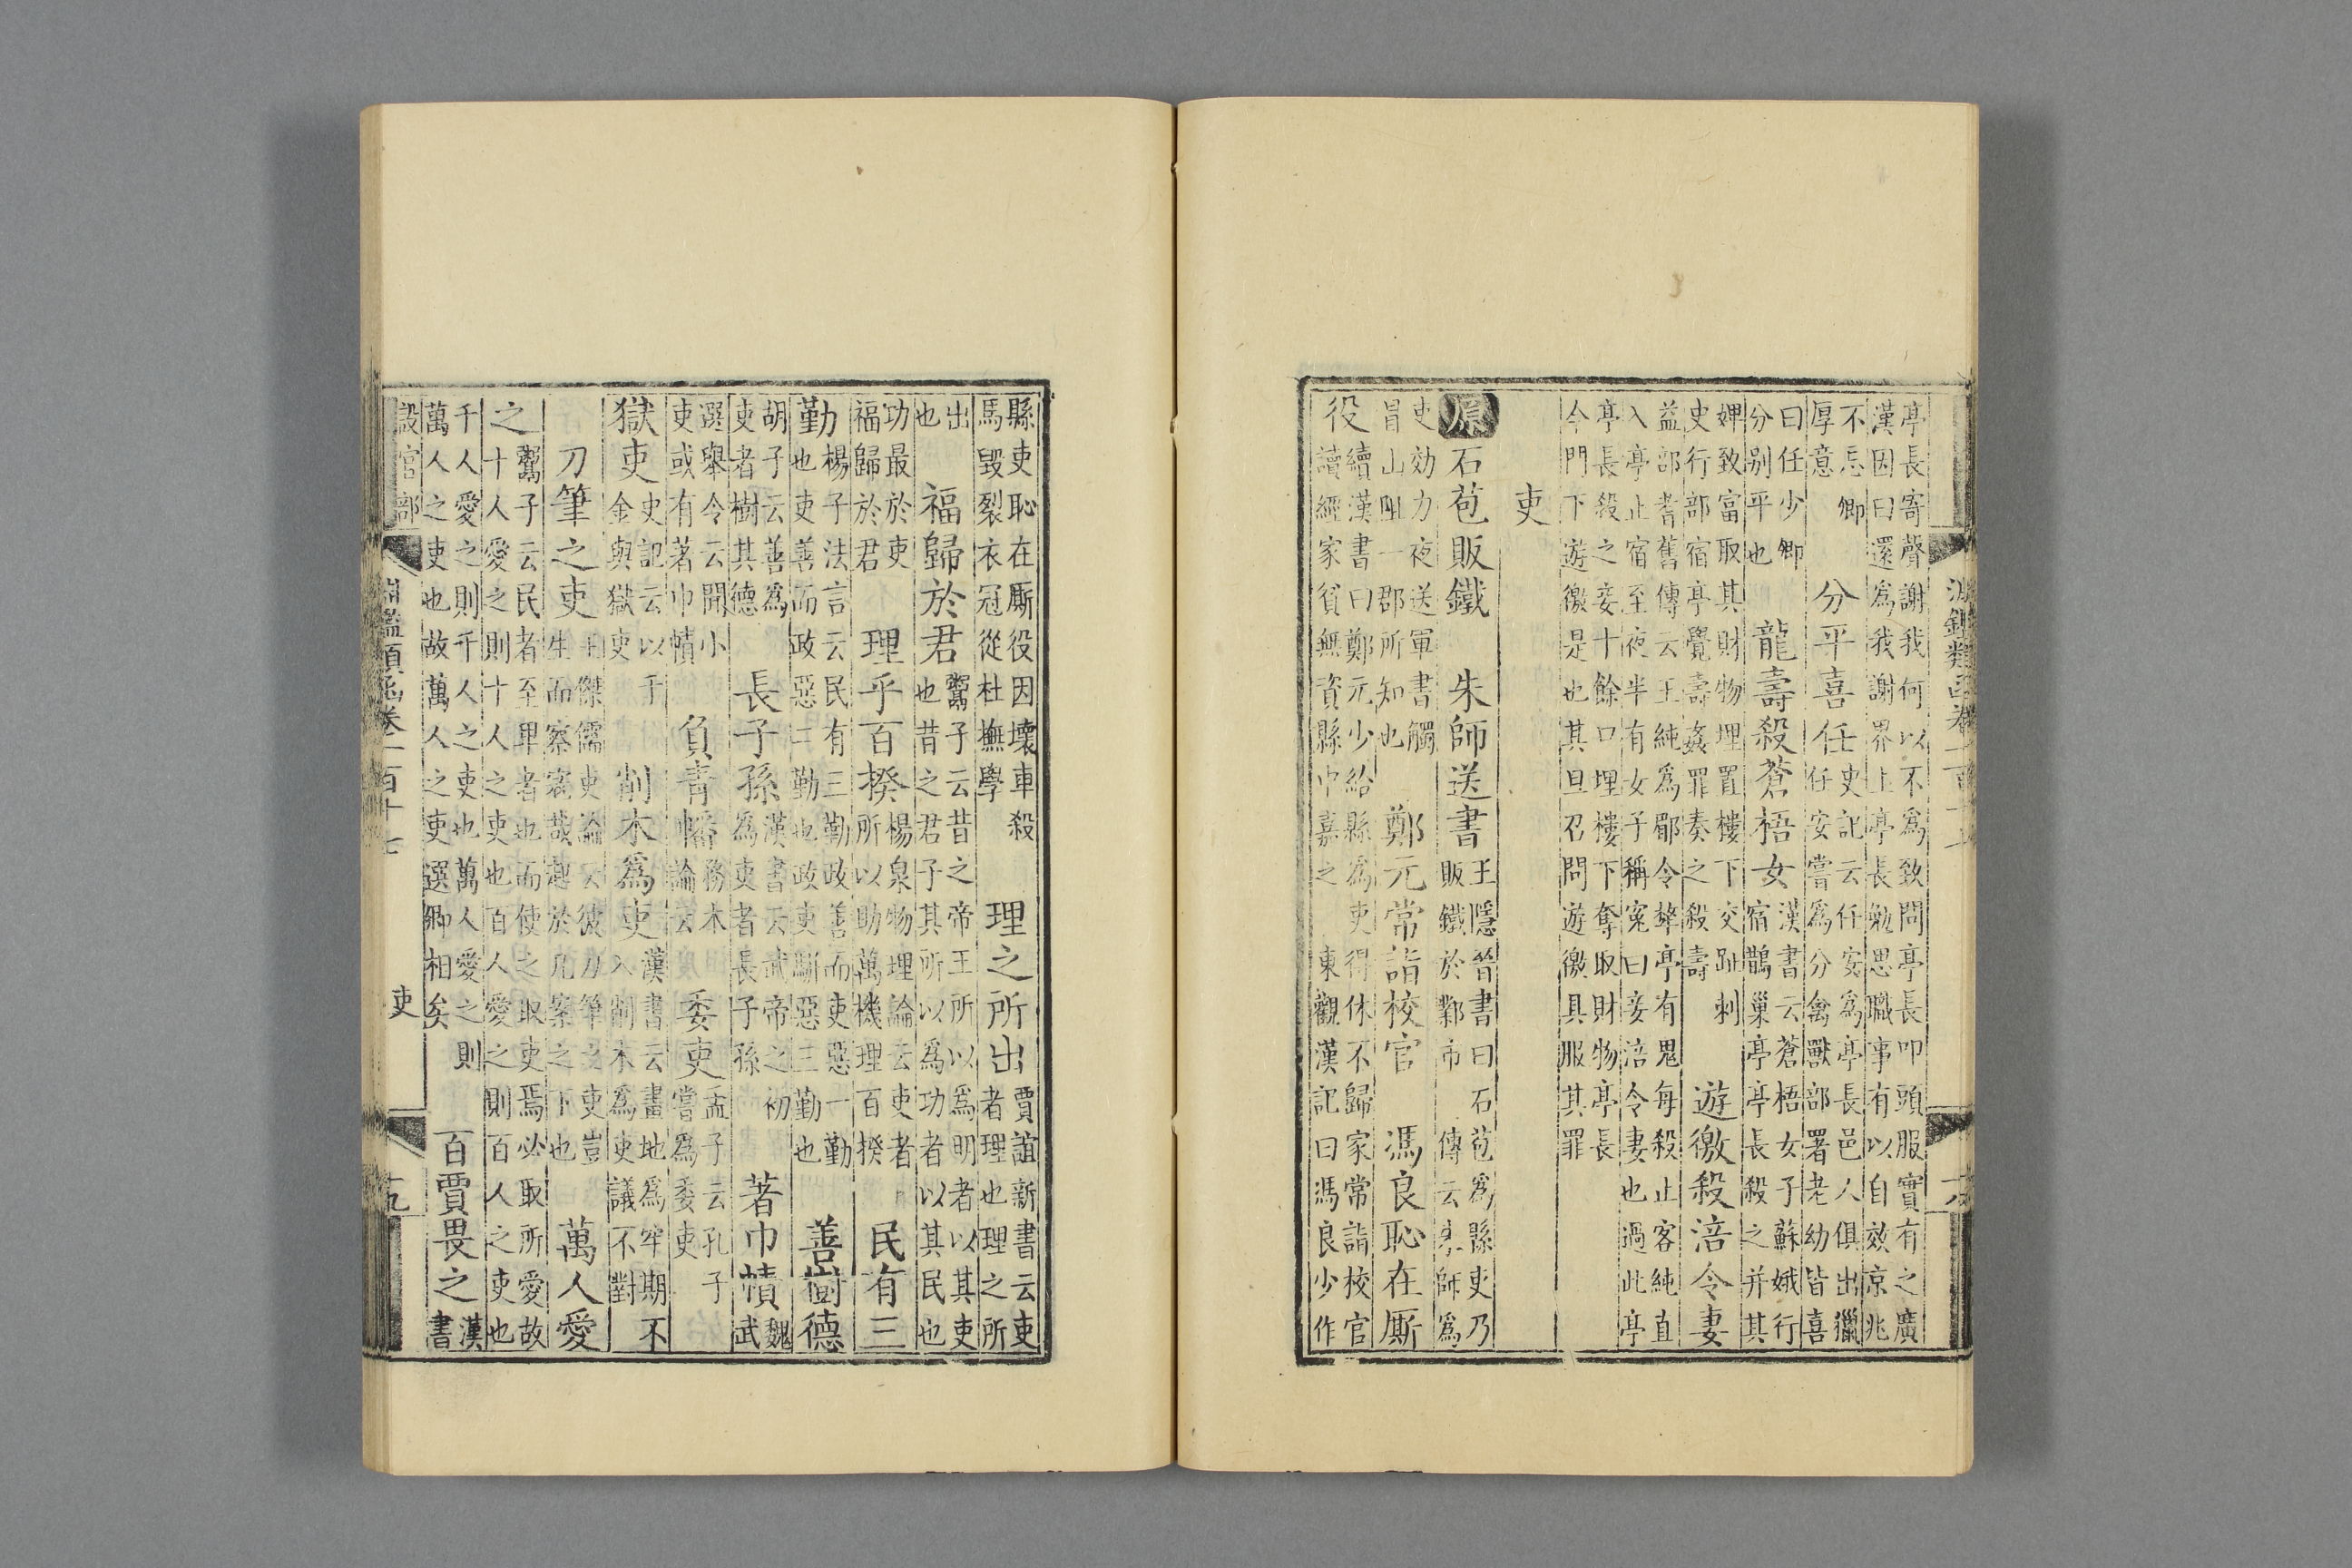 亭長寄聲謝我何以不為致問亭長叩頭服實有之廣
漢因曰還為我謝界上亭長勉思職事有以自效京兆
不忘卿
厚意
分平喜任
史記云任安為亭長邑人俱出獵
任安嘗為分禽獸部署老幼皆喜
曰任少卿
分別平也
龍壽殺蒼梧女
漢書云蒼梧女子蘇娥行
宿鵲巢亭亭長殺之并其
婢致富取其財物埋置樓下交趾刺
史行部宿亭覺壽姦罪奏之殺壽
遊徼殺涪令妻
益部耆舊傳云王純為郿令𣫍亭有鬼每殺止客純直
入亭止宿至夜半有女子稱寃曰妾涪令妻也過此亭
亭長殺之妾十餘口埋樓下奪取財物亭長
今門下遊徼是也其旦召問遊徼具服其罪
吏
原石苞販鐵
朱師送書
王隱晉書曰石苞為縣吏乃
販鐵於鄴市 傳云 師為
吏効力夜送軍書觸
冒山阻一郡所知也
鄭元常詣校官
馮良恥在厮
役
續漢書曰鄭元少給縣為吏得休不歸家常詣校官
讀經家貧無資縣中嘉之 東觀漢記曰馮良少作
縣吏恥在厮役因壞車殺
馬毀裂衣冠從杜撫學
理之所出
賈誼新書云吏
者理也理之所
出
也
福歸於君
鬻子云昔之帝王所以為明者以其吏
也昔之君子其所以為功者以其民也
功最於吏
福歸於君
理乎百揆
楊泉物理論云吏者
所以助萬機理百揆
民有三
勤
楊子法言云民有三勤政善而吏惡一勤
也吏善而政惡二勤也政吏駢惡三勤也
善樹德
胡子云善為
吏者樹其德
長子孫
漢書云武帝之初
為吏者長子孫
著巾幘
魏
武
選舉令云聞小
吏或有著巾幘
負青幡
務本
論云
委吏
孟子云孔子
嘗為委吏
獄吏
史記云以千
金與獄吏
削木為吏
漢書云畫地為牢期不
入削木為吏議不對
刀筆之吏
王傑儒吏論云彼刀筆之吏豈
生而察察哉起於几案之下也
萬人愛
之
鬻子云民者至卑者也而使之取吏焉必取所愛故
十人愛之則十人之吏也百人愛之則百人之吏也
千人愛之則千人之吏也萬人愛之則
萬人之吏也故萬人之吏選卿相矣
百賈畏之
漢
書
設官部
淵鑑類函卷一百十七
吏
十九